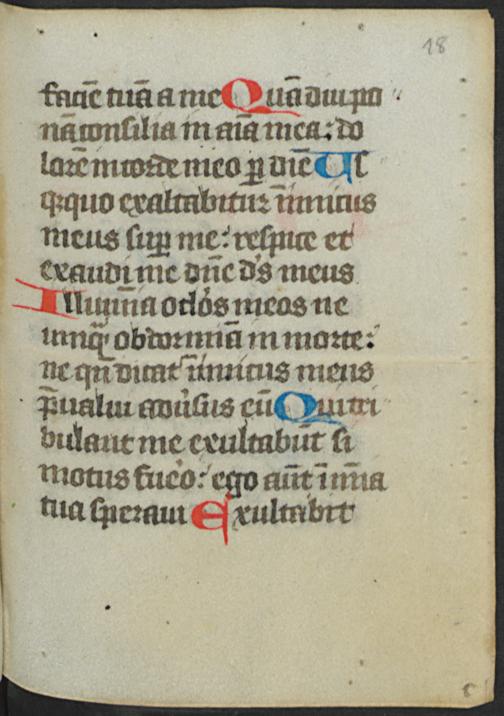 18
faciē tuā a me Quādiu po
nā consilia in aīa mea: do
lorē in corde meo ꝑ diē Us
qꝫquo exaltabitur inimicus
meus suꝑ me: respice et
exaudi me dn̄e ds̄ meus
Illumīa oc̄los meos ne
umqȝ obdormiā in morte:
ne qn̄ dicat inimicus meus
p̄ualui adūsus eū Qui tri
bulant me exultabūt si
motus fuero: ego aūt ī mīa
tua speraui Exultabit